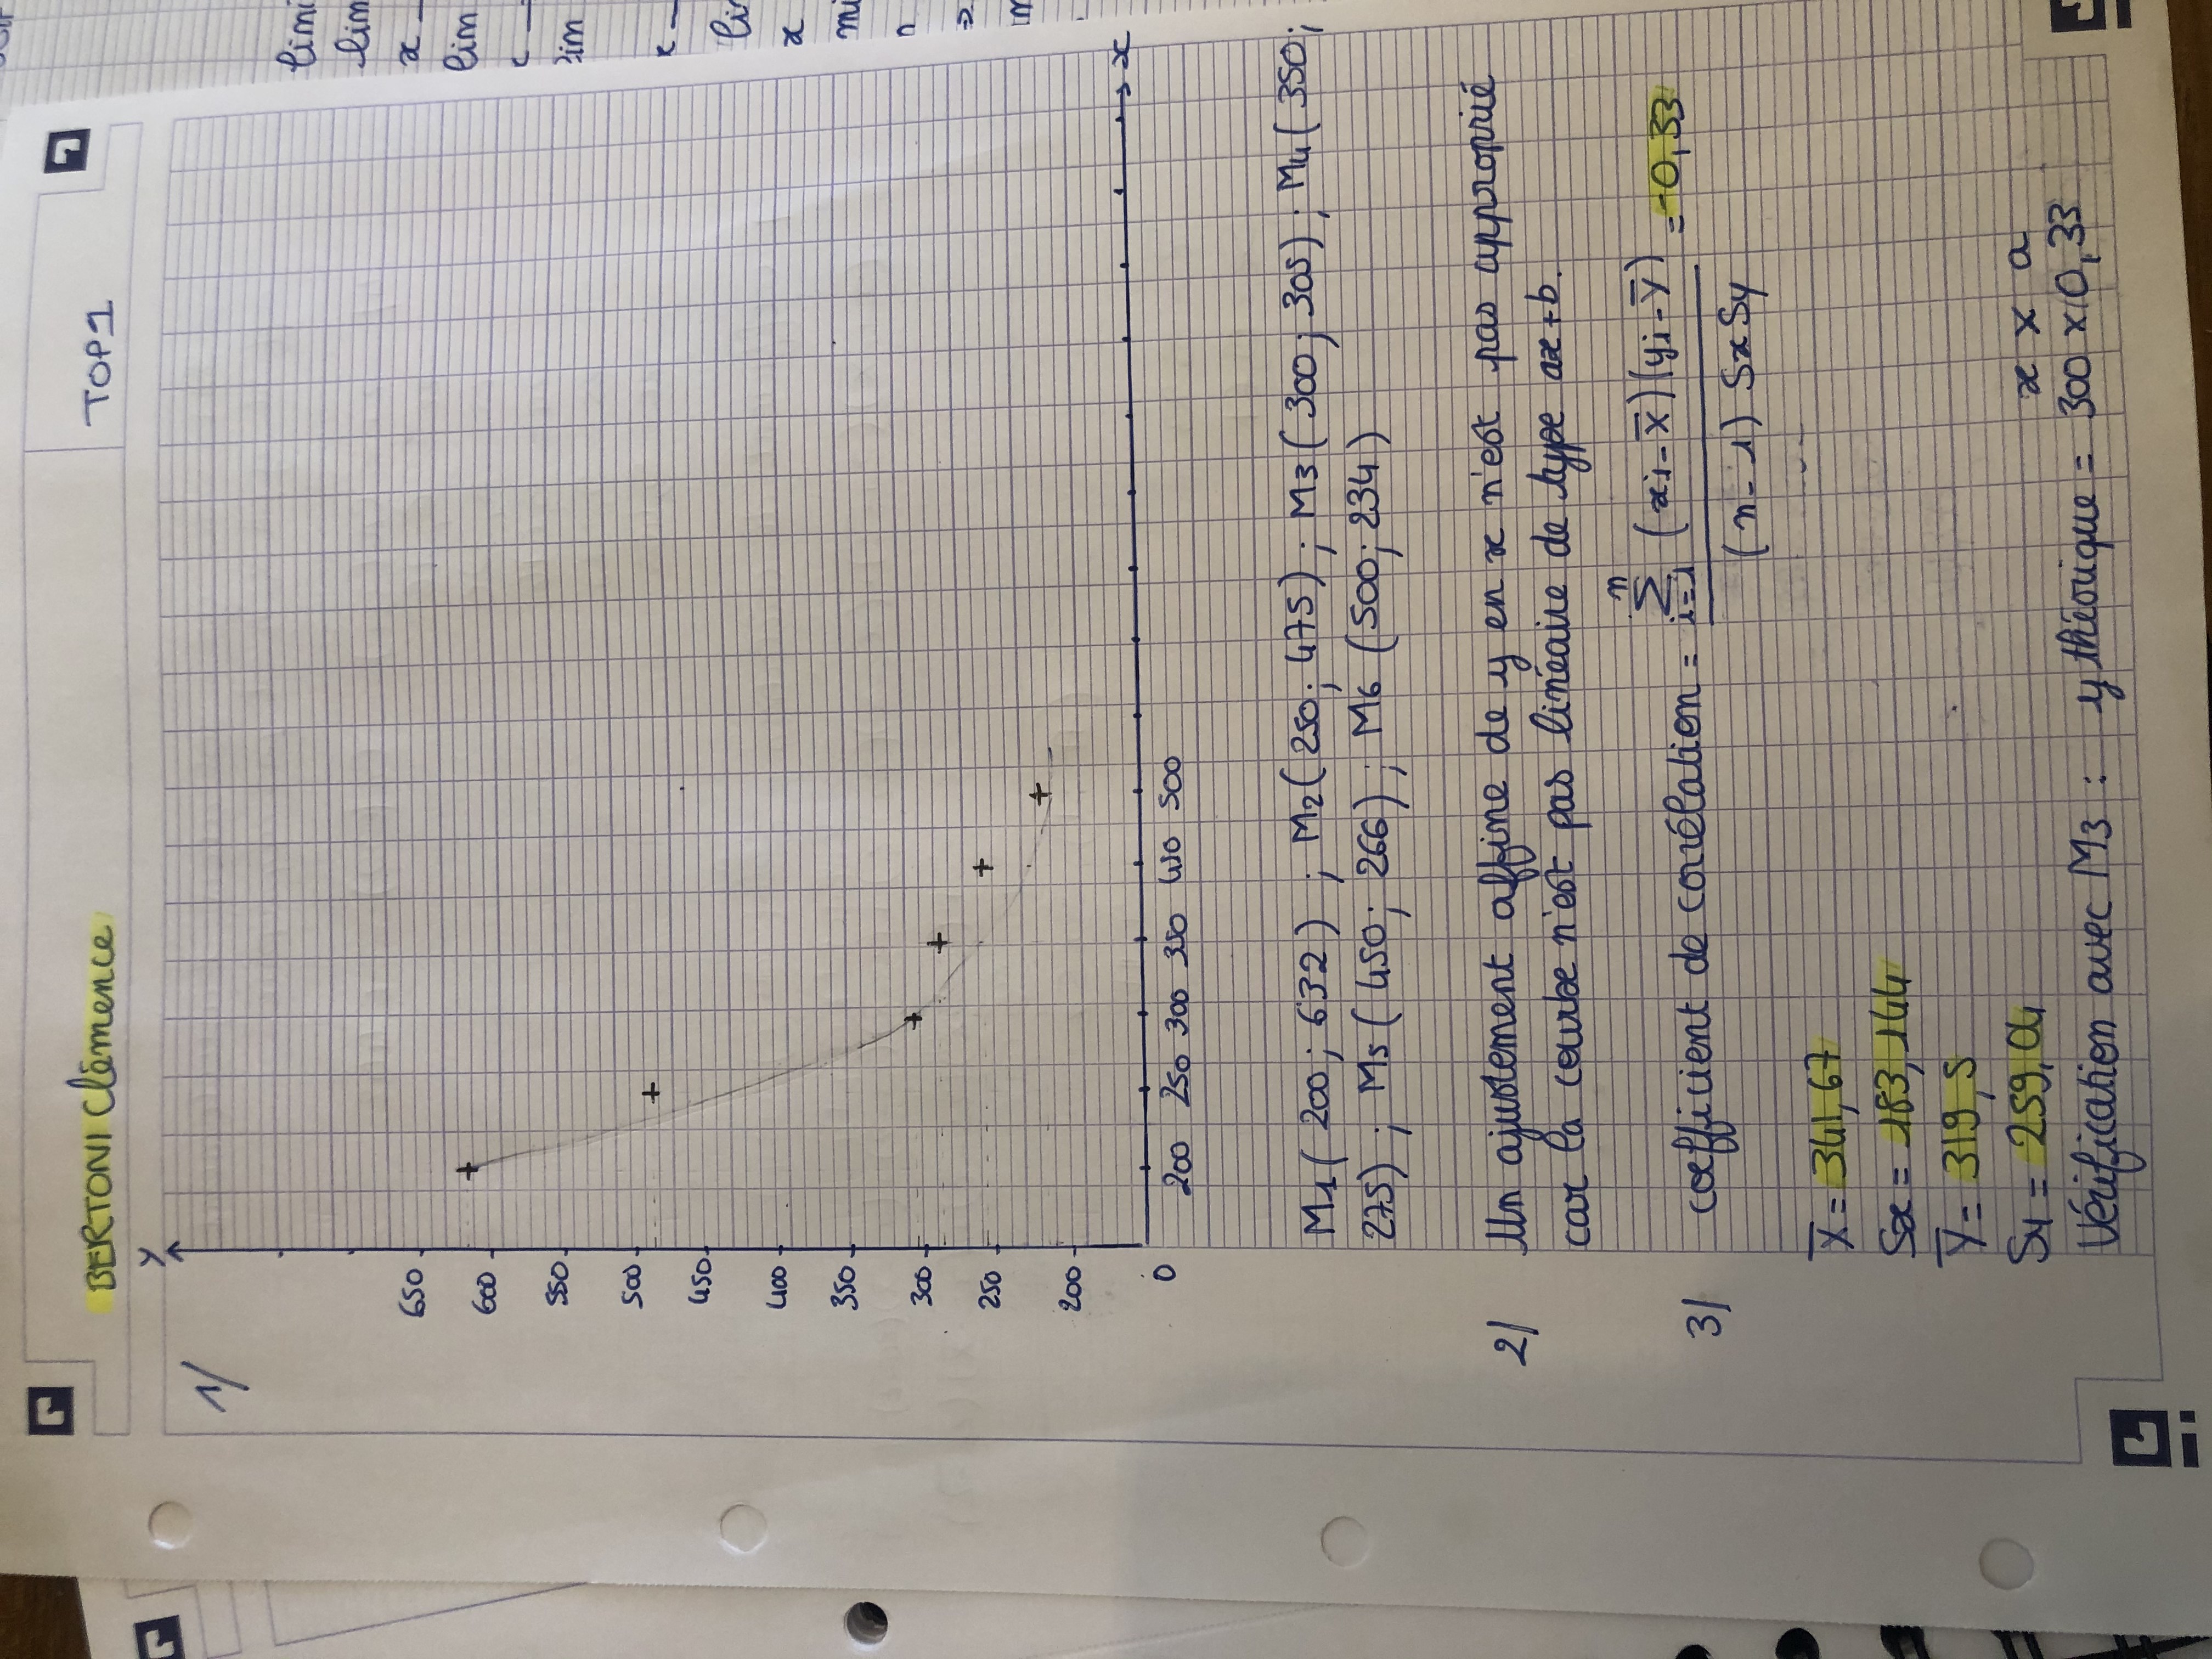 BERTONI Clémence
TOP1
1/
y
650
600
550
500
450
400
350
300
250
200
0
200 250 300 350 450 500
x
M1 ( 200 ; 632 ) ; M2 ( 250 ; 475 ) ; M3 ( 300 ; 305 ) ; M4 ( 350 ;
275 ) ; M5 ( 450 ; 266 ) ; M6 ( 500 ; 234 )
2/ Un ajustement affine de y en x n'est pas approprié
car la courbe n'est pas linéaire de type ax+b.
3/ coefficient de corrélation = n∑i=1 (xi - X̅)(yi - Y̅) / (n - 1) Sx Sy = -0,33
X̅ = 341,67
Sx = 183,144
Y̅ = 319,5
Sy = 259,04
x × a
Vérification avec M3 : y théorique = 300 × 0,33
limi
lim
x
lim
lim
x
x
mi
n
⇒